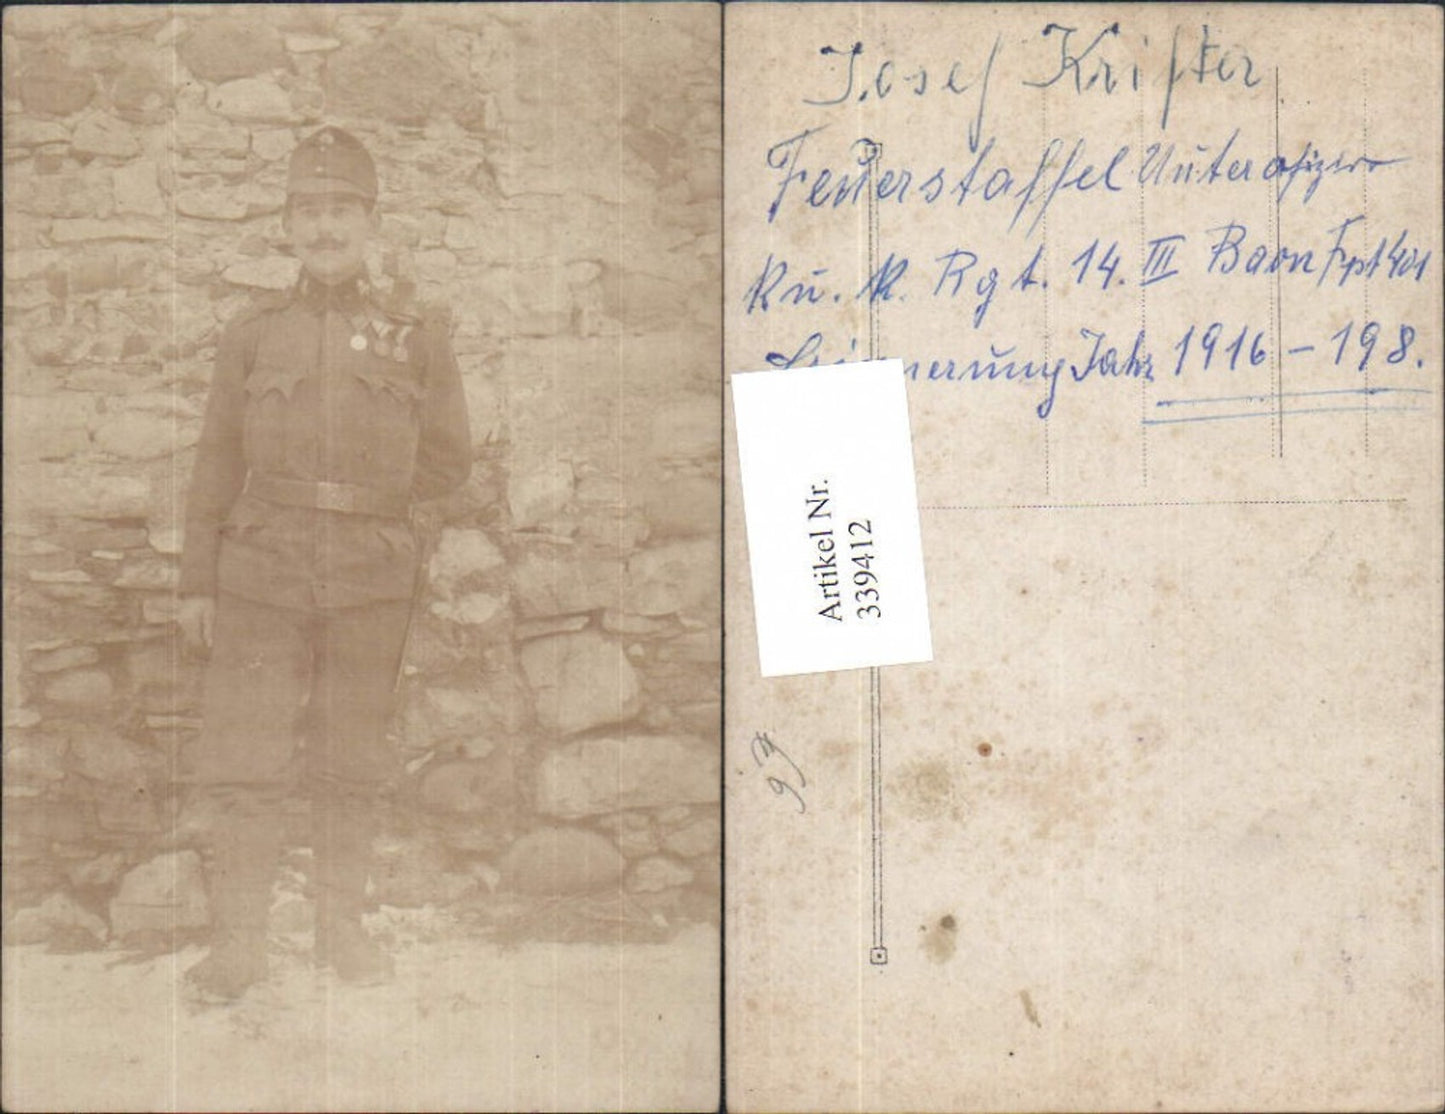 Josef Krifter
Feuerstaffel Unterofizier
K u. K. Rgt. 14. III Baon Fpt 401
nerung Jahr 1916 - 198.
Artikel Nr.
339412